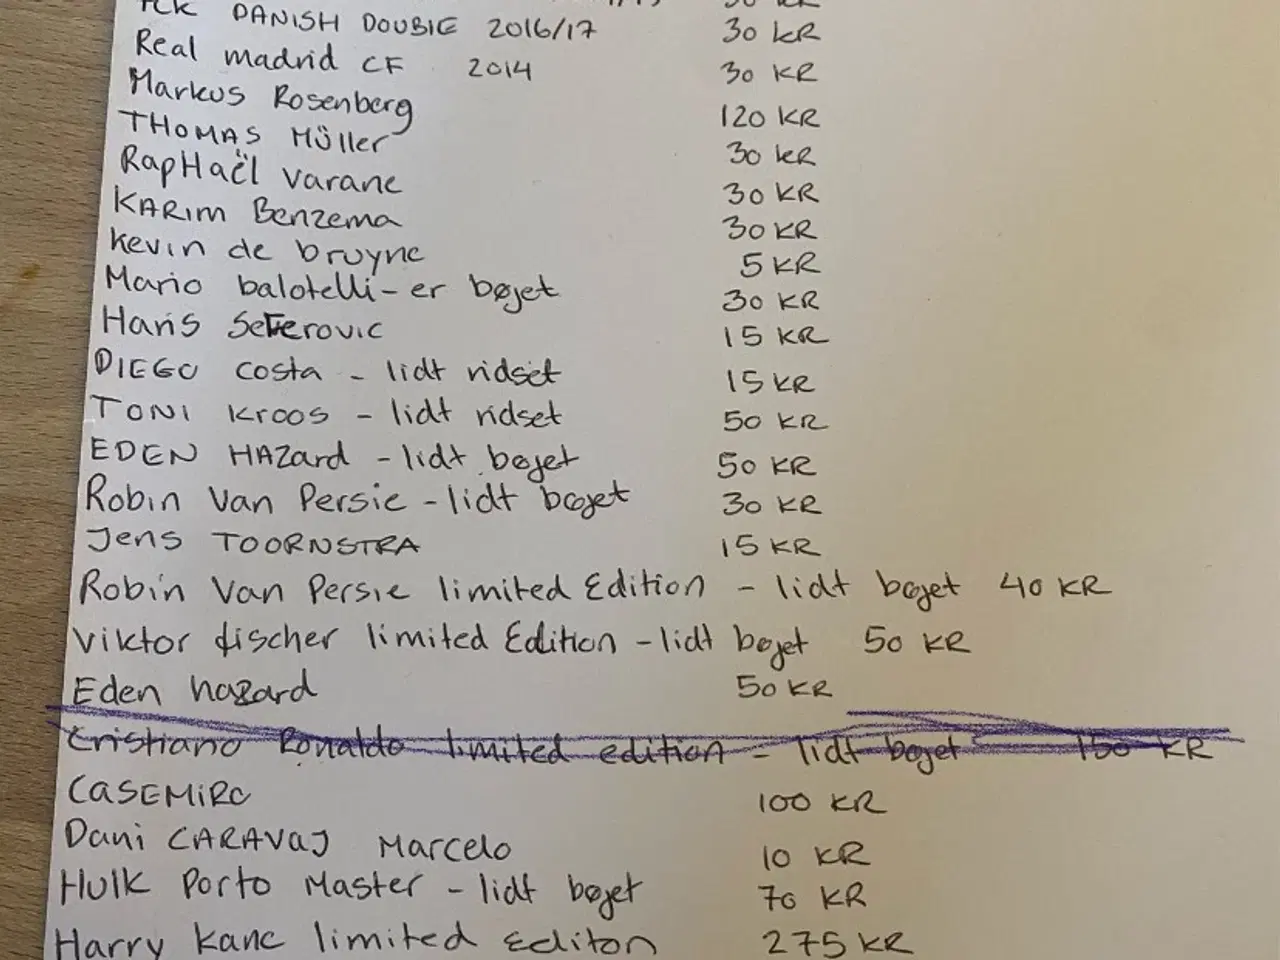 FCK DANISH DOUBlE 2016/17 30 kR
Real madrid CF 2014 30 KR
Markus Rosenberg 120 KR
THOMAS Müller 30 kR
RapHaël Varane 30 KR
KARIM Benzema 30 KR
Kevin de bruyne 5 KR
Mario balotelli - er bøjet 30 KR
Haris Seferovic 15 KR
DIEGO Costa - lidt ridset 15 KR
TONI Kroos - lidt ridset 50 KR
EDEN HAZard - lidt bøjet 50 KR
Robin Van Persie - lidt bøjet 30 KR
Jens TOORNSTRA 15 KR
Robin Van Persie limited Edition - lidt bøjet 40 KR
Viktor fischer limited Edition - lidt bøjet 50 KR
Eden hazard 50 KR
Cristiano Ronaldo limited edition - lidt bøjet 150 KR
CASEMIRO 100 KR
Dani CARAVAJ Marcelo 10 KR
Hulk Porto Master - lidt bøjet 70 KR
Harry Kane limited Editon 275 KR